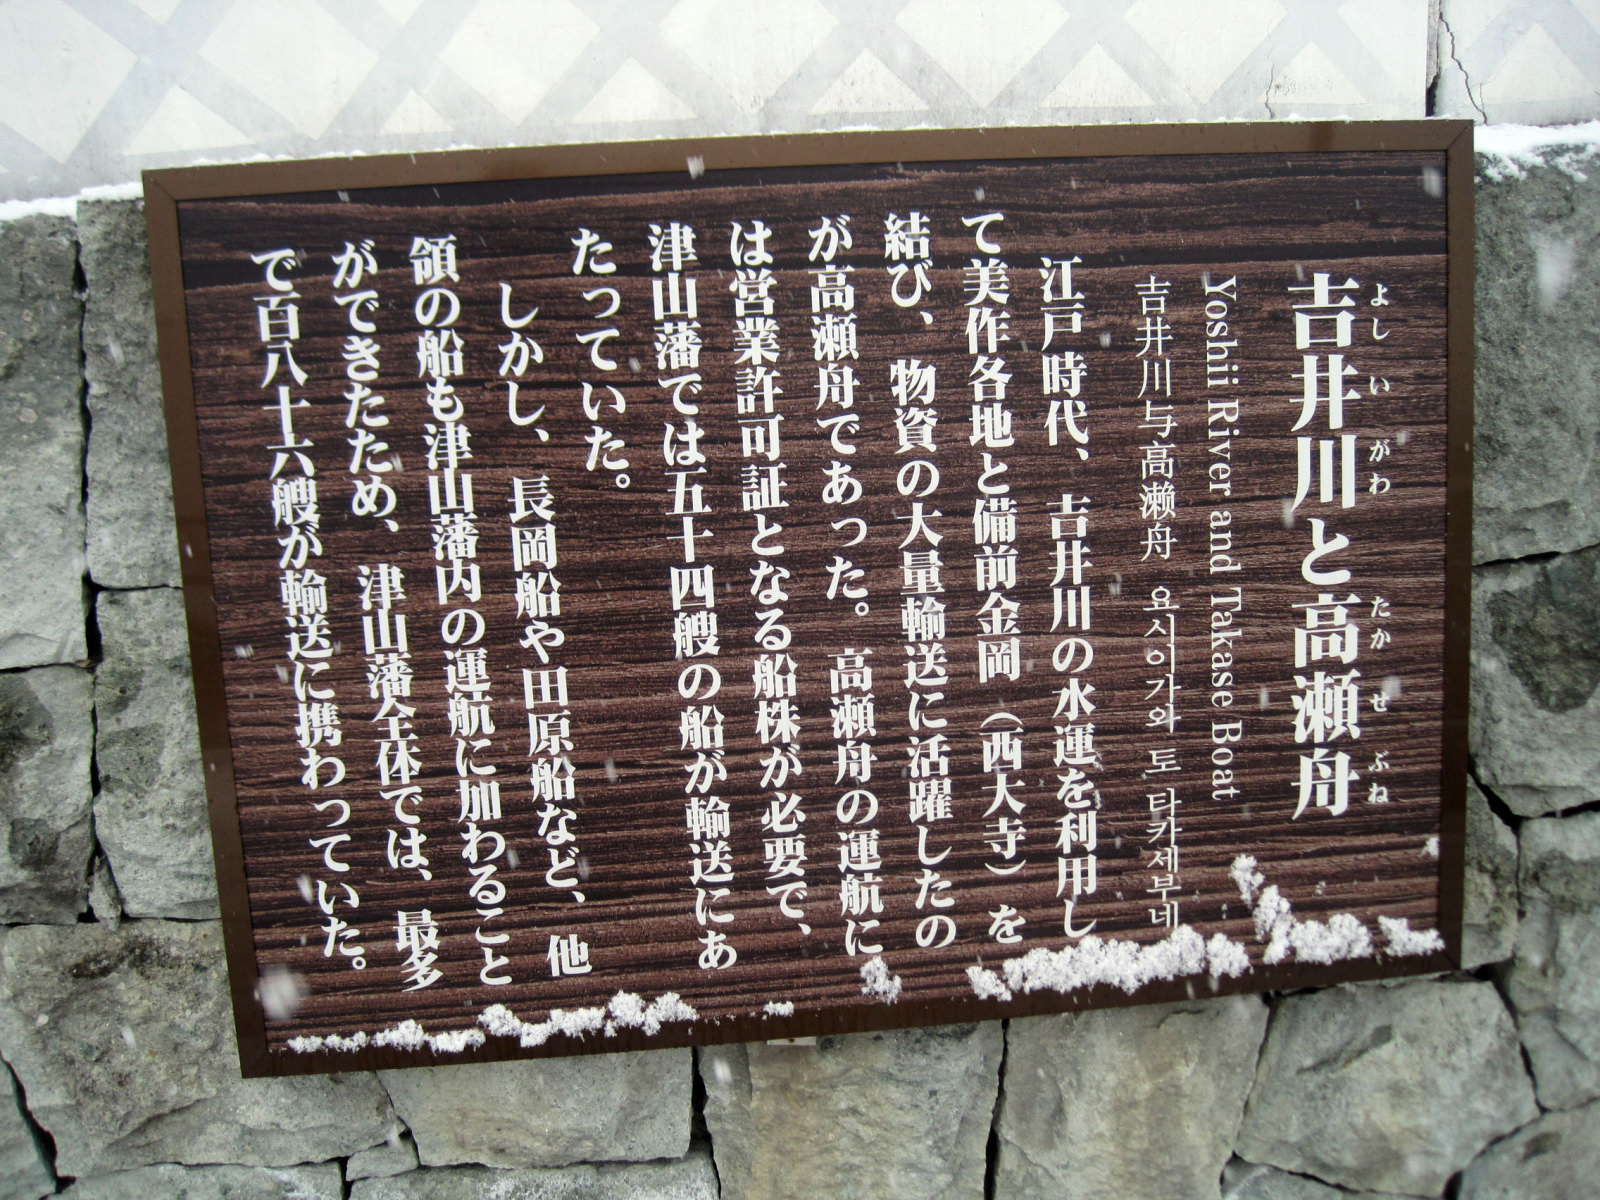 吉井川と高瀬舟
よしいがわ たかせぶね
Yoshii River and Takase Boat
吉井川与高濑舟 요시이가와 토 타카세부네
江戸時代、吉井川の水運を利用し
て美作各地と備前金岡（西大寺）を
結び、物資の大量輸送に活躍したの
が高瀬舟であった。高瀬舟の運航に
は営業許可証となる船株が必要で、
津山藩では五十四艘の船が輸送にあ
たっていた。
しかし、長岡船や田原船など、他
領の船も津山藩内の運航に加わること
ができたため、津山藩全体では、最多
で百八十六艘が輸送に携わっていた。